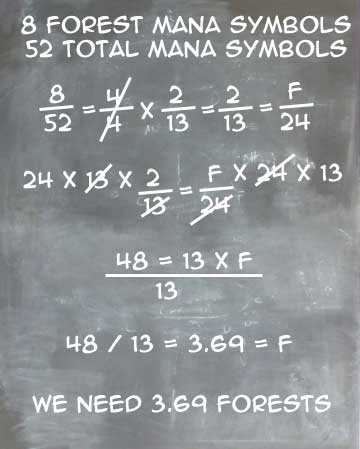 8 FOREST MANA SYMBOLS
52 TOTAL MANA SYMBOLS
8/52 = 4/4 X 2/13 = 2/13 = F/24
24 X 13 X 2/13 = F/24 X 24 X 13
48 = 13 X F
13
48 / 13 = 3.69 = F
WE NEED 3.69 FORESTS